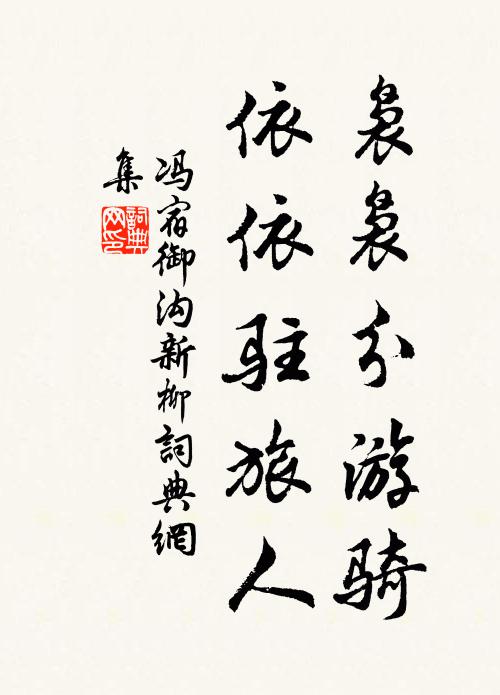 裊裊分游骑
依依驻旅人
冯宿御沟新柳詞典網
集
詞典
网印